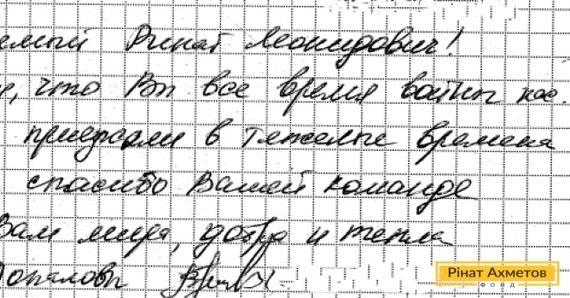 емый Ринат Леонидович!
, что Вы все время войны нас
в тяжелые времена
спасибо Вашей команде
Вам мира, добра и тепла
Рінат Ахметов
ФОНД